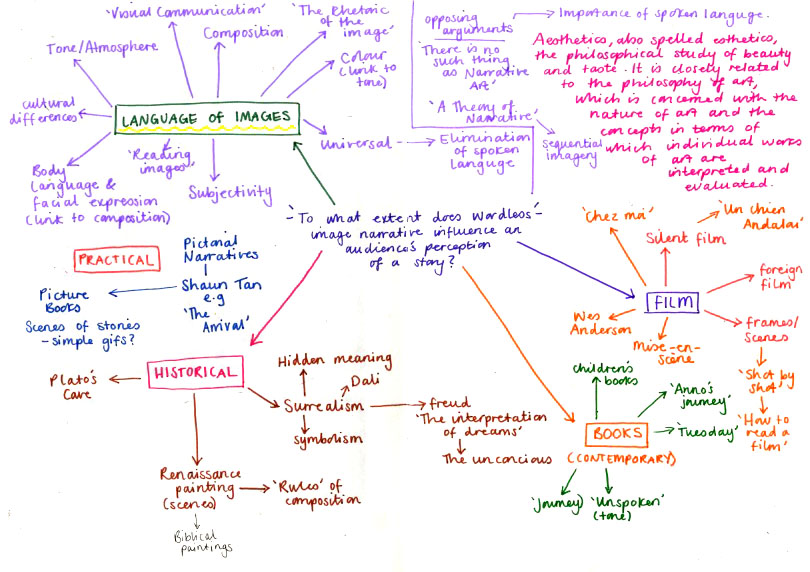 'Visual Communication'
Tone/Atmosphere
Composition
'The Rhetoric
of the
image'
Colour
(link to
tone)
cultural
differences
LANGUAGE of IMAGES
Body
Language &
facial expression
(link to composition)
'Reading
images'
Subjectivity
Universal
Elimination
of spoken
languge
opposing
arguments
'There is no
such thing
as Narrative
Art'
'A Theory of
Narrative'
sequential
imagery
Importance of spoken languge.
Aesthetics, also spelled esthetics,
the philosophical study of beauty
and taste. It is closely related
to the philosophy of art,
which is concerned with the
nature of art and the
concepts in terms of
which individual works
of art are
interpreted and
evaluated.
'To what extent does Wordless
image narrative influence an
audience's perception
of a story?
PRACTICAL
Pictorial
Narratives
Shaun Tan
e.g
'The
Arrival'
Picture
Books
Scenes of stories
- simple gifs?
HISTORICAL
Plato's
Cave
Hidden meaning
Dali
Surrealism
symbolism
freud
'The interpretation
of dreams'
The unconcious
Renaissance
painting
(scenes)
'Rules' of
composition
Biblical
paintings
'Chez moi'
Silent film
'Un Chien
Andalou'
FILM
foreign
film
Wes
Anderson
Mise-en-
scene
frames/
scenes
'Shot by
shot'
'How to
read a
film'
children's
books
'Anno's
journey'
BOOKS
(CONTEMPORARY)
'Tuesday'
'Journey'
'Unspoken'
(tone)